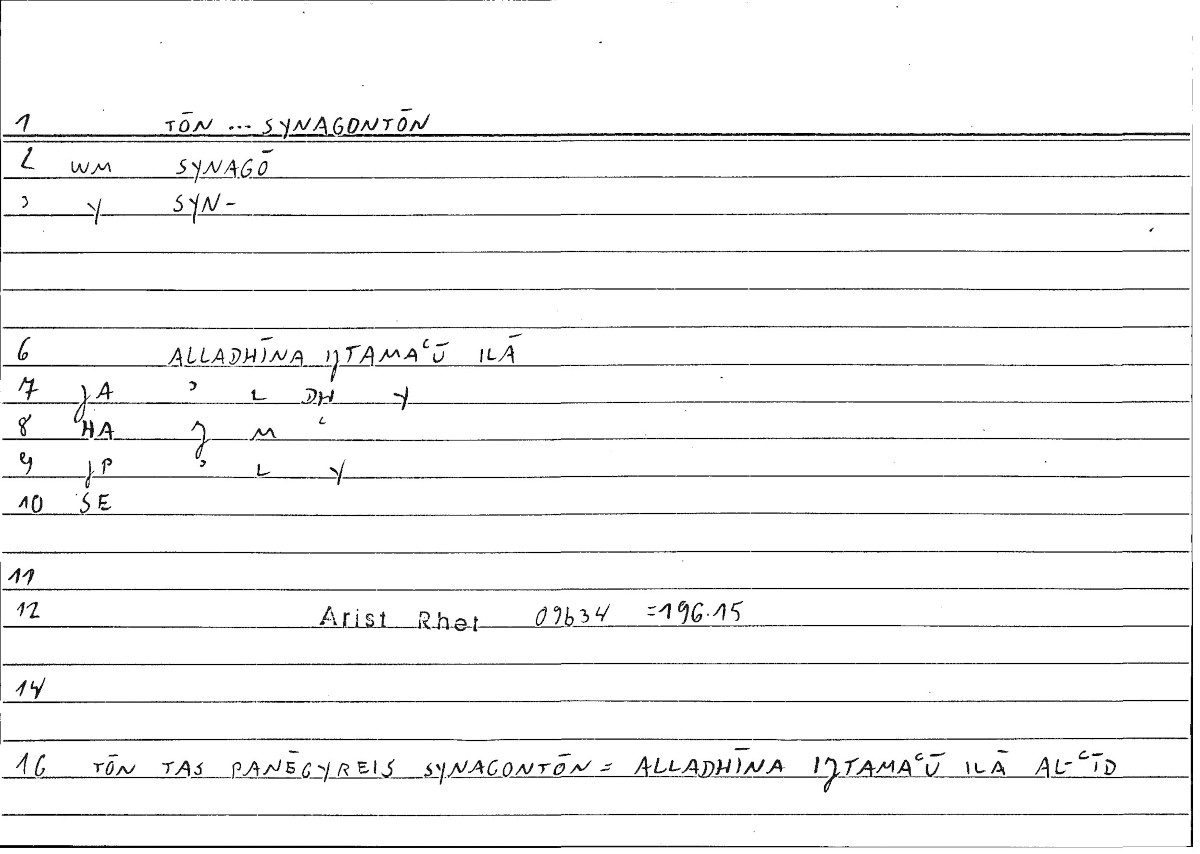 1 TŌN ... SYNAGONTŌN
2 WM SYNAGŌ
3 Y SYN-
6 ALLADHĪNA IȜTAMAʿŪ ILĀ
7 ȜA ʾ L DH Y
8 HA Ȝ M ʿ
9 ȜP ʾ L Y
10 SE
11
12 Arist Rhet 09b34 =196.15
14
16 TŌN TAS PANĒGYREIS SYNAGONTŌN = ALLADHĪNA IȜTAMAʿŪ ILĀ AL-ʿĪD